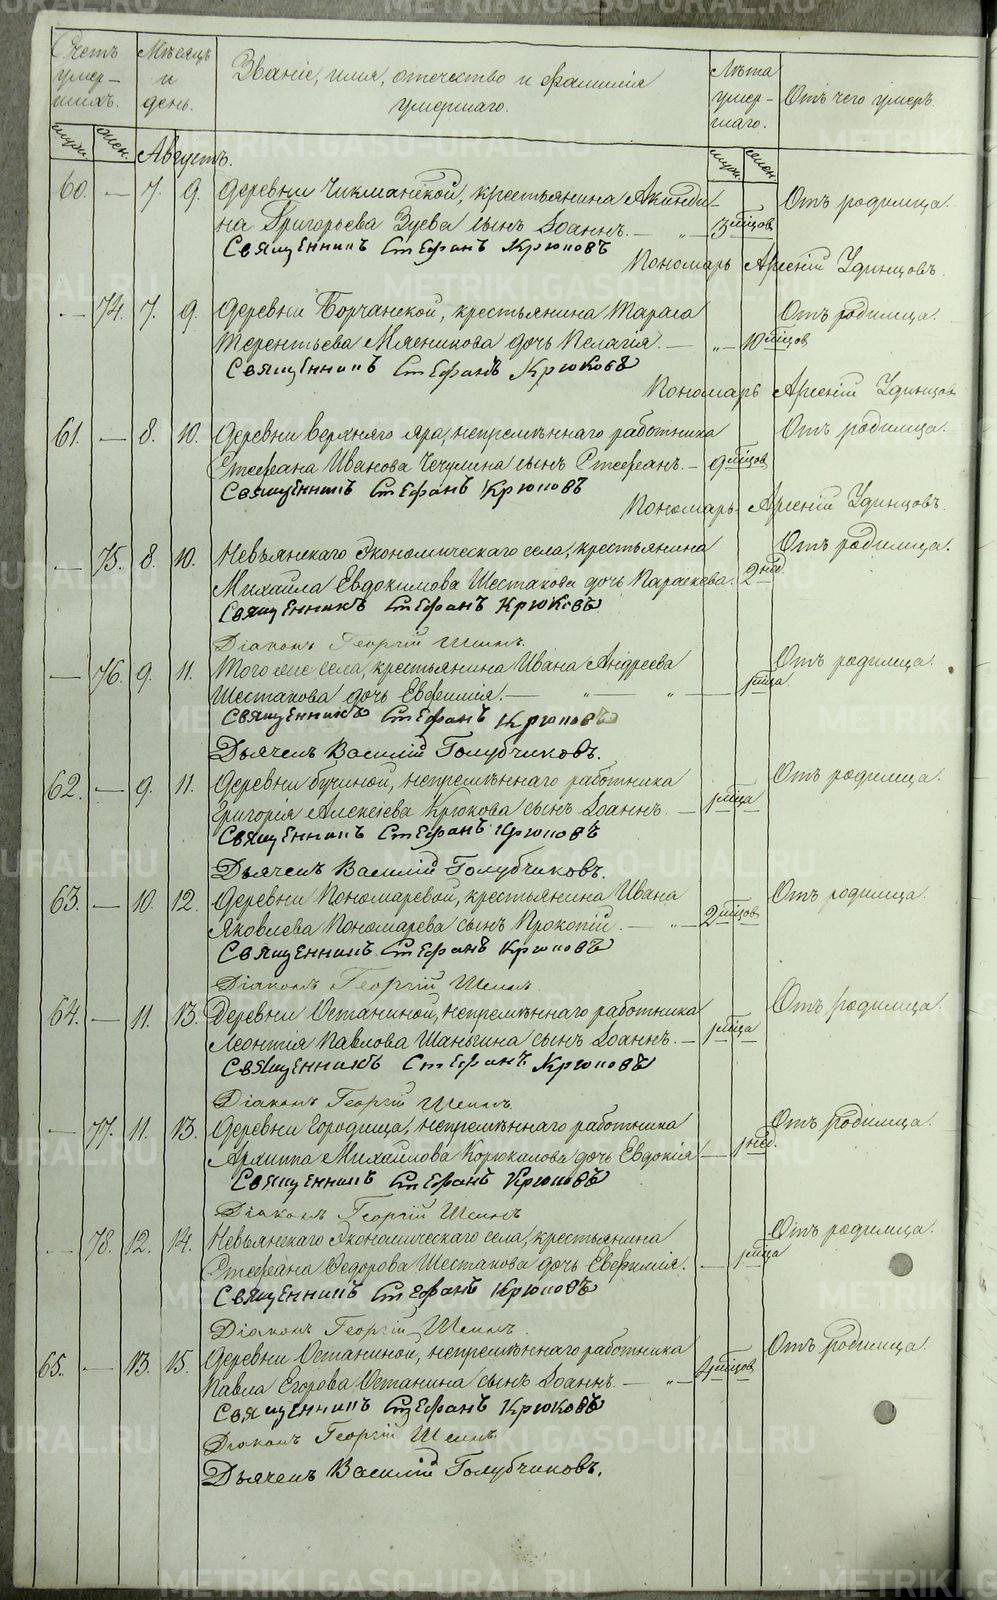 Счетъ умер-шихъ. Мѣсяцъ и день. Званіе, имя, отчество и фамилія умершаго. Лѣта умер-шаго. Отъ чего умеръ.
муж. жен. Августъ. муж. жен.
60. — 7. 9. Деревни Чикманской, крестьянина Акинди- Отъ родимца.
на Григорьева Зуева сынъ Іоаннъ. — „ — 3 мѣсцов
Священникъ Стефанъ Крюковъ
Пономарь Арсеній Удинцовъ.
— 74. 7. 9. Деревни Борчанской, крестьянина Тараса Отъ родимца.
Терентьева Мясникова дочь Пелагія. — „ — 10 мѣсцов
Священникъ Стефанъ Крюковъ
Пономарь Арсеній Удинцов
61. — 8. 10. Деревни Верхняго яра, непремѣннаго работника Отъ родимца.
Стефана Иванова Чечулина сынъ Стефанъ. — 9 мѣсцов
Священникъ Стефанъ Крюковъ
Пономарь Арсеній Удинцовъ.
— 75. 8. 10. Невьянскаго экономическаго села, крестьянина Отъ родимца.
Михаила Евдокимова Шестакова дочь Параскева. 2 нед
Священникъ Стефанъ Крюковъ
Діаконъ Георгій Шеинъ.
— 76. 9. 11. Того же села, крестьянина Ивана Андреева Отъ родимца.
Шестакова дочь Евфимія. — „ — „ — 1 мѣца.
Священникъ Стефанъ Крюковъ
Дьячекъ Василій Голубчиковъ.
62. — 9. 11. Деревни Бучиной, непремѣннаго работника Отъ родимца.
Григорія Алексѣева Крюкова сынъ Іоаннъ. — 1 мѣца
Священникъ Стефанъ Крюковъ
Дьячекъ Василій Голубчиковъ.
63. — 10. 12. Деревни Пономаревой, крестьянина Ивана Отъ родимца.
Яковлева Пономарева сынъ Прокопій. — „ — 2 мѣсцов
Священникъ Стефанъ Крюковъ
Діаконъ Георгій Шеинъ.
64. — 11. 13. Деревни Останиной, непремѣннаго работника Отъ родимца.
Леонтія Павлова Шаньгина сынъ Іоаннъ. — 1 мѣца
Священникъ Стефанъ Крюковъ
Діаконъ Георгій Шеинъ.
— 77. 11. 13. Деревни Городища, непремѣннаго работника Отъ родимца.
Архипа Михайлова Корюкалова дочь Евдокія — 1 нед.
Священникъ Стефанъ Крюковъ
Діаконъ Георгій Шеинъ
— 78. 12. 14. Невьянскаго экономическаго села, крестьянина Отъ родимца.
Стефана Ѳедорова Шестакова дочь Евфимія. — 1 мѣца
Священникъ Стефанъ Крюковъ
Діаконъ Георгій Шеинъ.
65. — 13. 15. Деревни Останиной, непремѣннаго работника Отъ родимца.
Павла Егорова Останина сынъ Іоаннъ. — „ — 4 мѣсцов
Священникъ Стефанъ Крюковъ
Діаконъ Георгій Шеинъ.
Дьячекъ Василій Голубчиковъ.
METRIKI.GASO-URAL.RU